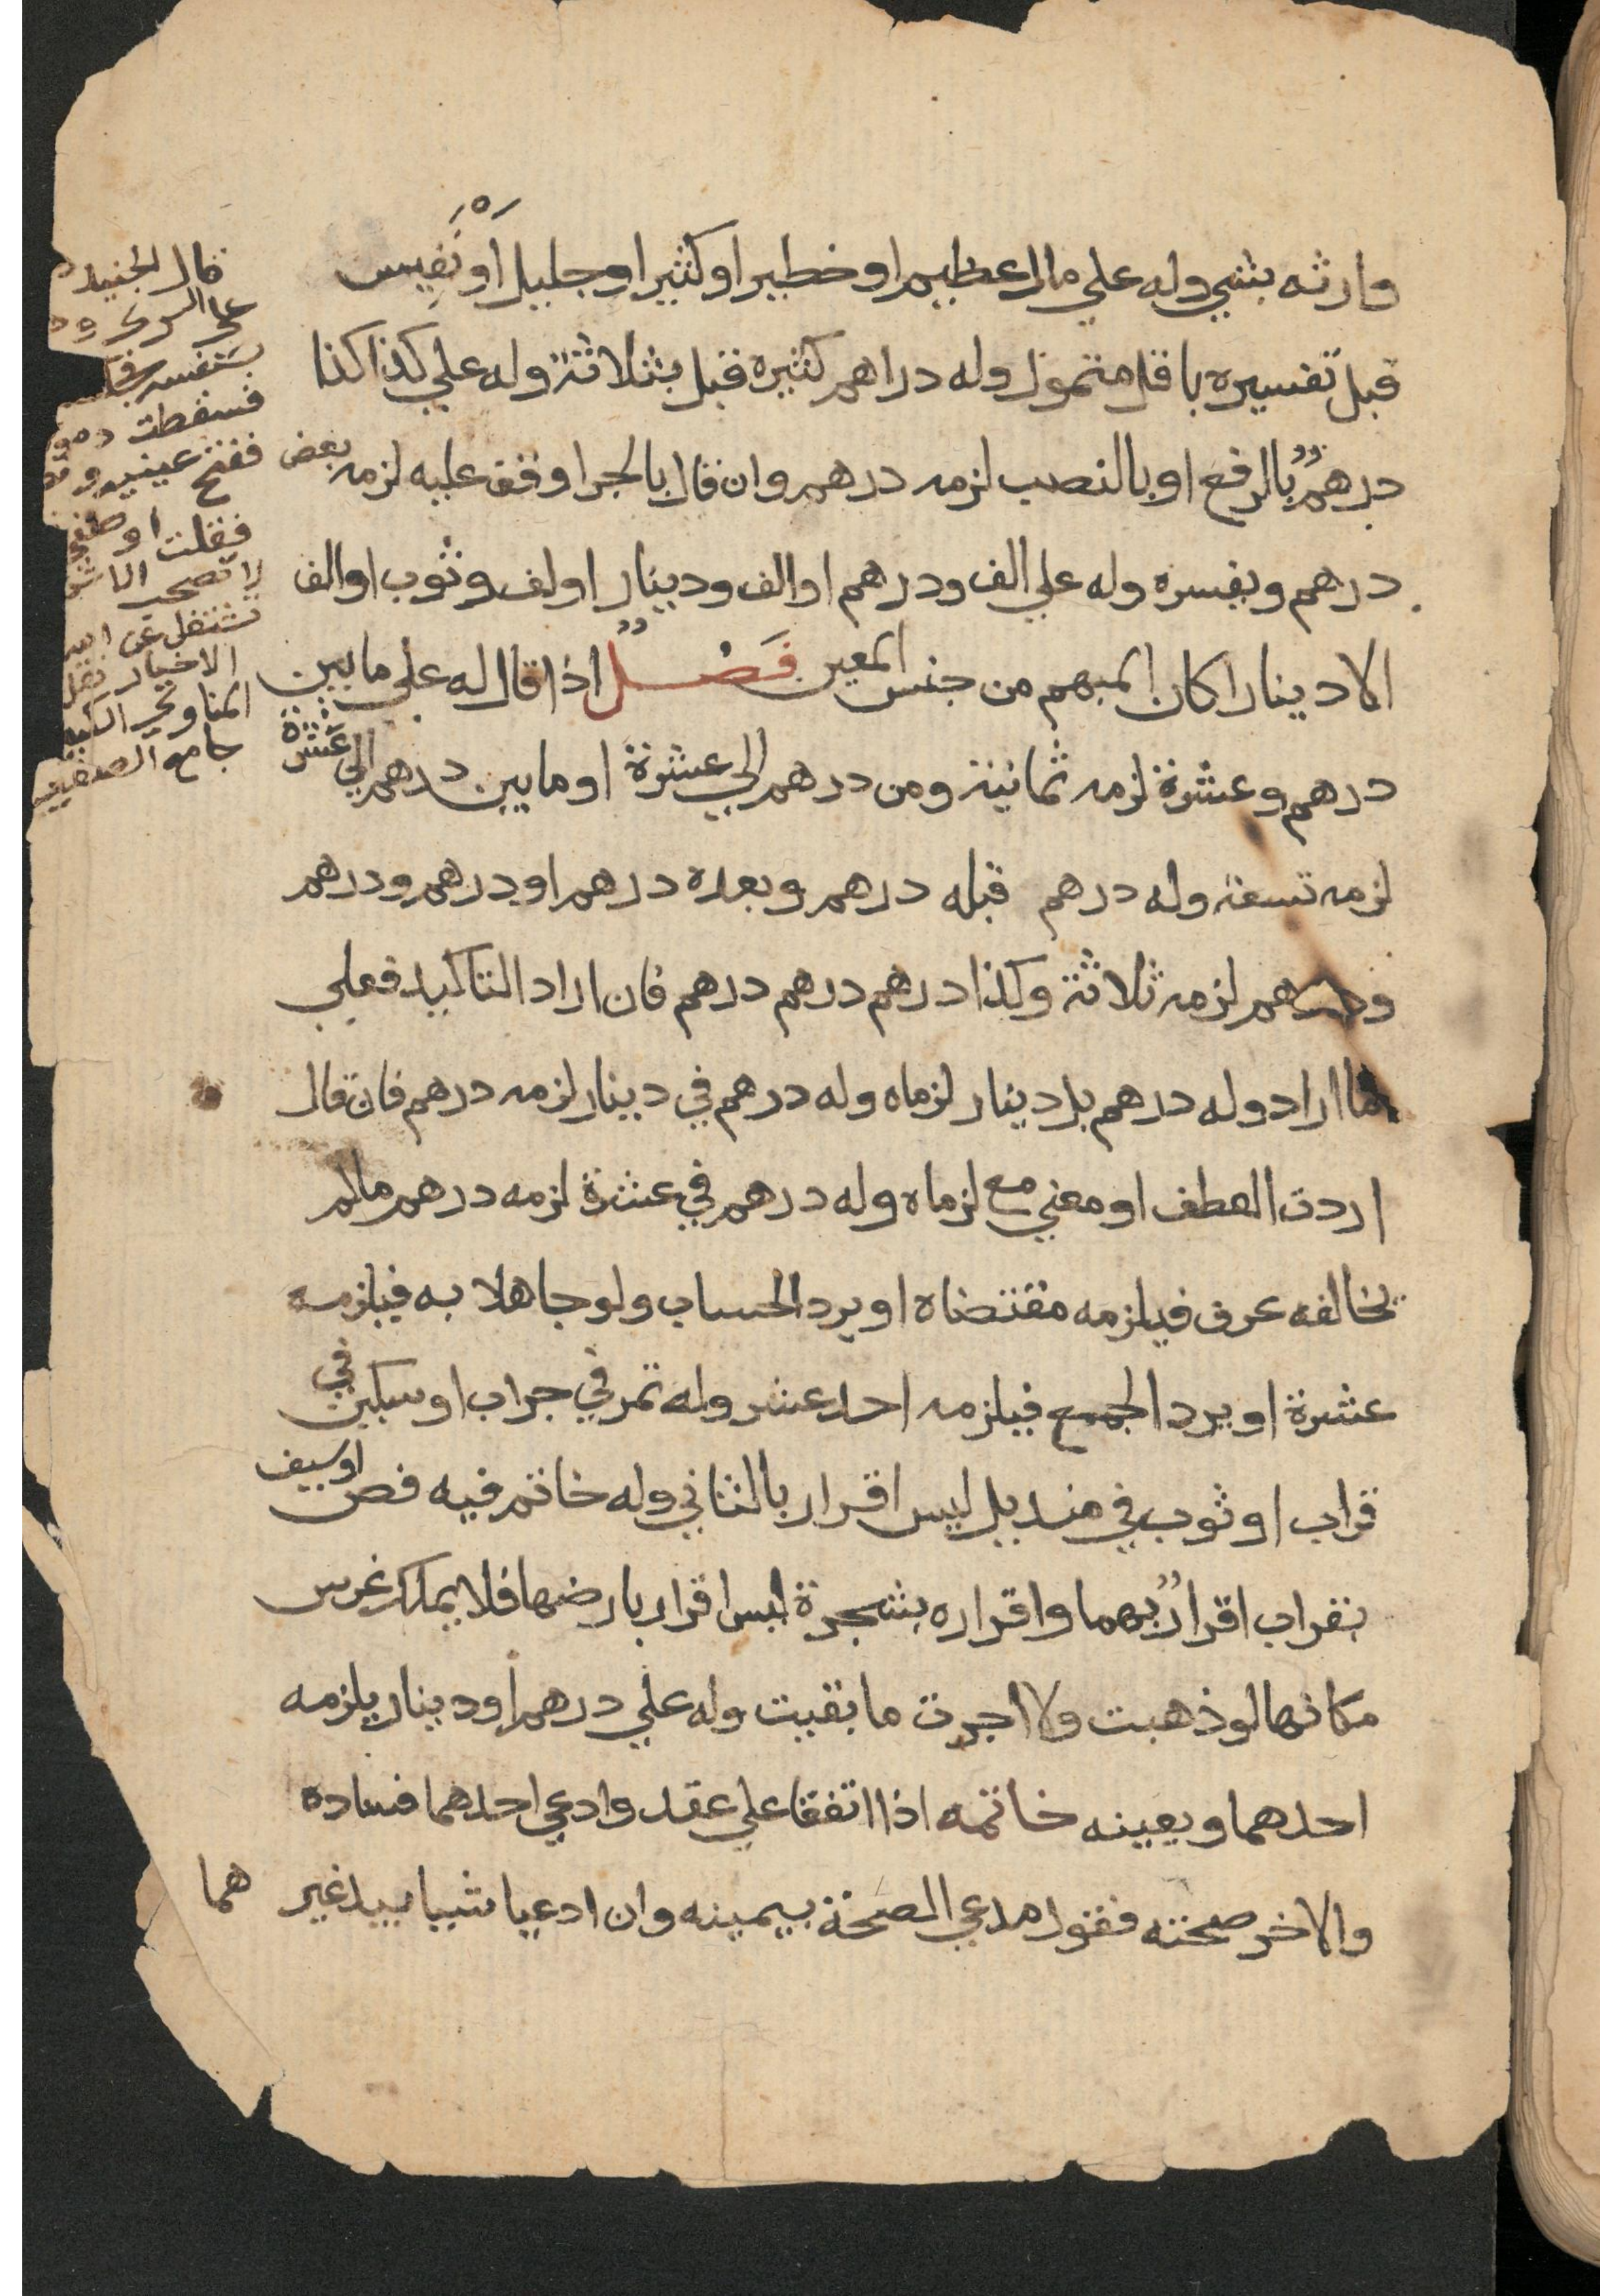 وارثه بشي وله علي مال عظيم او خطير او كثير او جليل أو نَفِيس
قبل تفسيره باقل متمول وله دراهم كثيره قبل بثلاثة وله علي كذا كذا
درهمٌ بالرفع او بالنصب لزمه درهم وان قال بالجر او وقف عليه لزمه بعض
درهم ويفسره وله علي الف ودرهم او الف ودينار او لف وثوب او الف
الا دينارا كان المبهم من جنس المعين فَصْلٌ اذا قال له علي ما بين
درهم وعشرة لزمه ثمانية ومن درهم الي عشرة او ما بين درهم الي عشرة
لزمه تسعة وله درهم قبله درهم وبعده درهم او درهم ودرهم
ودرهم لزمه ثلاثة وكذا درهم درهم درهم فان اراد التاكيد فعلي
ما اراد وله درهم بل دينار لزماه وله درهم في دينار لزمه درهم فان قال
اردت العطف او معني مع لزماه وله درهم في عشرة لزمه درهم مالم
يخالفه عرف فيلزمه مقتضاه او يرد الحساب ولو جاهلا به فيلزمه
عشرة او يرد الجمع فيلزمه احد عشر وله تمر في جراب او سكين في
قراب او ثوب في منديل ليس اقرار بالثاني وله خاتم فيه فص او سيف
بقراب اقرارٌ بهما واقراره بشجرة ليس اقرار بارضها فلا يملك غرس
مكانها لو ذهبت ولا اجرت ما بقيت وله علي درهم أو دينار يلزمه
احدهما ويعينه خاتمه اذا اتفقا علي عقد وادعي احدهما فساده
والاخر صحته فقول مدعي الصحة بيمينه وان ادعيا شيا بيد غير هما
قال الجنيد
فسقطت
ففتح عينيه و
فقلت اوصني
لا تصحب الا
تشتغل عن
الاخيار نقل
المناوي الكبير
جامع الصغير